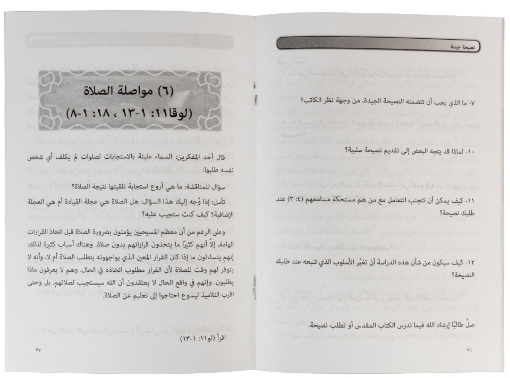 نصيحة جيدة
٧- ما الذي يجب أن تتضمنه النصيحة الجيدة، من وجهة نظر الكاتب؟
١٠- لماذا قد يتجه البعض إلى تقديم نصيحة سلبية؟
١١- كيف يمكن أن نتجنب التعامل مع من هم مستحكة مسامعهم (٤: ٣) عند
طلبك نصيحة؟
١٢- كيف سيكون من شأن هذه الدراسة أن تغيَّر الأسلوب الذي تتبعه عند طلبك
النصيحة؟
صلِّ طالبًا إرشاد الله فيما تدرس الكتاب المقدس أو تطلب نصيحة.
٣٦
(٦) مواصلة الصلاة
(لوقا١١: ١-١٣ ، ١٨: ١-٨)
قال أحد المفكرين: السماء مليئة بالاستجابات لصلوات لم يكلف أي شخص
نفسه طلبها.
سؤال للمناقشة: ما هي أروع استجابة تلقيتها نتيجة الصلاة؟
تأمل: إذا وُجه إليك هذا السؤال: هل الصلاة هي عجلة القيادة أم هي العجلة
الإضافية؟ كيف كنت ستجيب عليه؟
وعلى الرغم من أن معظم المسيحيين يؤمنون بضرورة الصلاة قبل اتخاذ القرارات
الهامة، إلاَّ أنهم كثيرًا ما يتخذون قراراتهم بدون صلاة. وهناك أسباب كثيرة لذلك:
إنهم يتساءلون ما إذا كان القرار المعين الذي يواجهونه يتطلب الصلاة أم لا، وأنه لا
يتوفر لهم وقت للصلاة لأن القرار مطلوب اتخاذه في الحال، وهم لا يعرفون ماذا
يطلبون، وإنهم في واقع الحال لا يعتقدون أن الله سيستجيب لصلاتهم. بل وحتى
أقرب التلاميذ ليسوع احتاجوا إلى تعليم عن الصلاة.
اقرأ (لو١١: ١-١٣)
٣٧